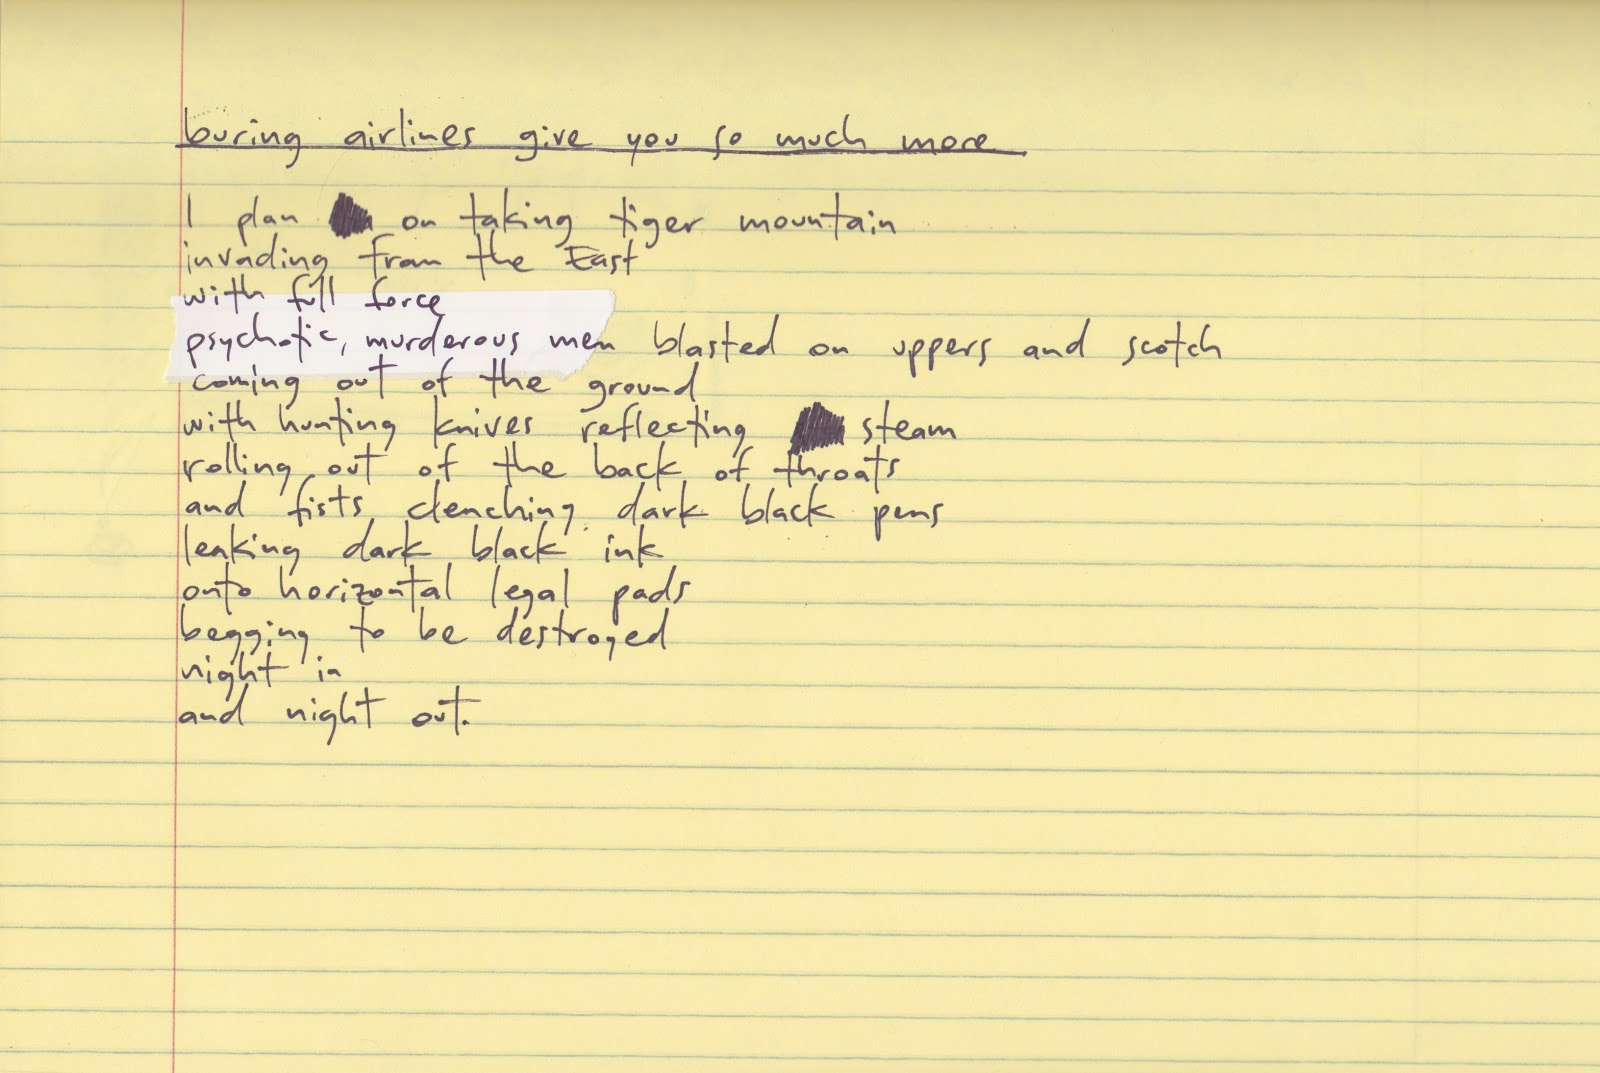 buring airlines give you so much more
I plan on taking tiger mountain
invading from the East
with full force
psychotic, murderous men blasted on uppers and scotch
coming out of the ground
with hunting knives reflecting steam
rolling out of the back of throats
and fists clenching dark black pens
leaking dark black ink
onto horizontal legal pads
begging to be destroyed
night in
and night out.